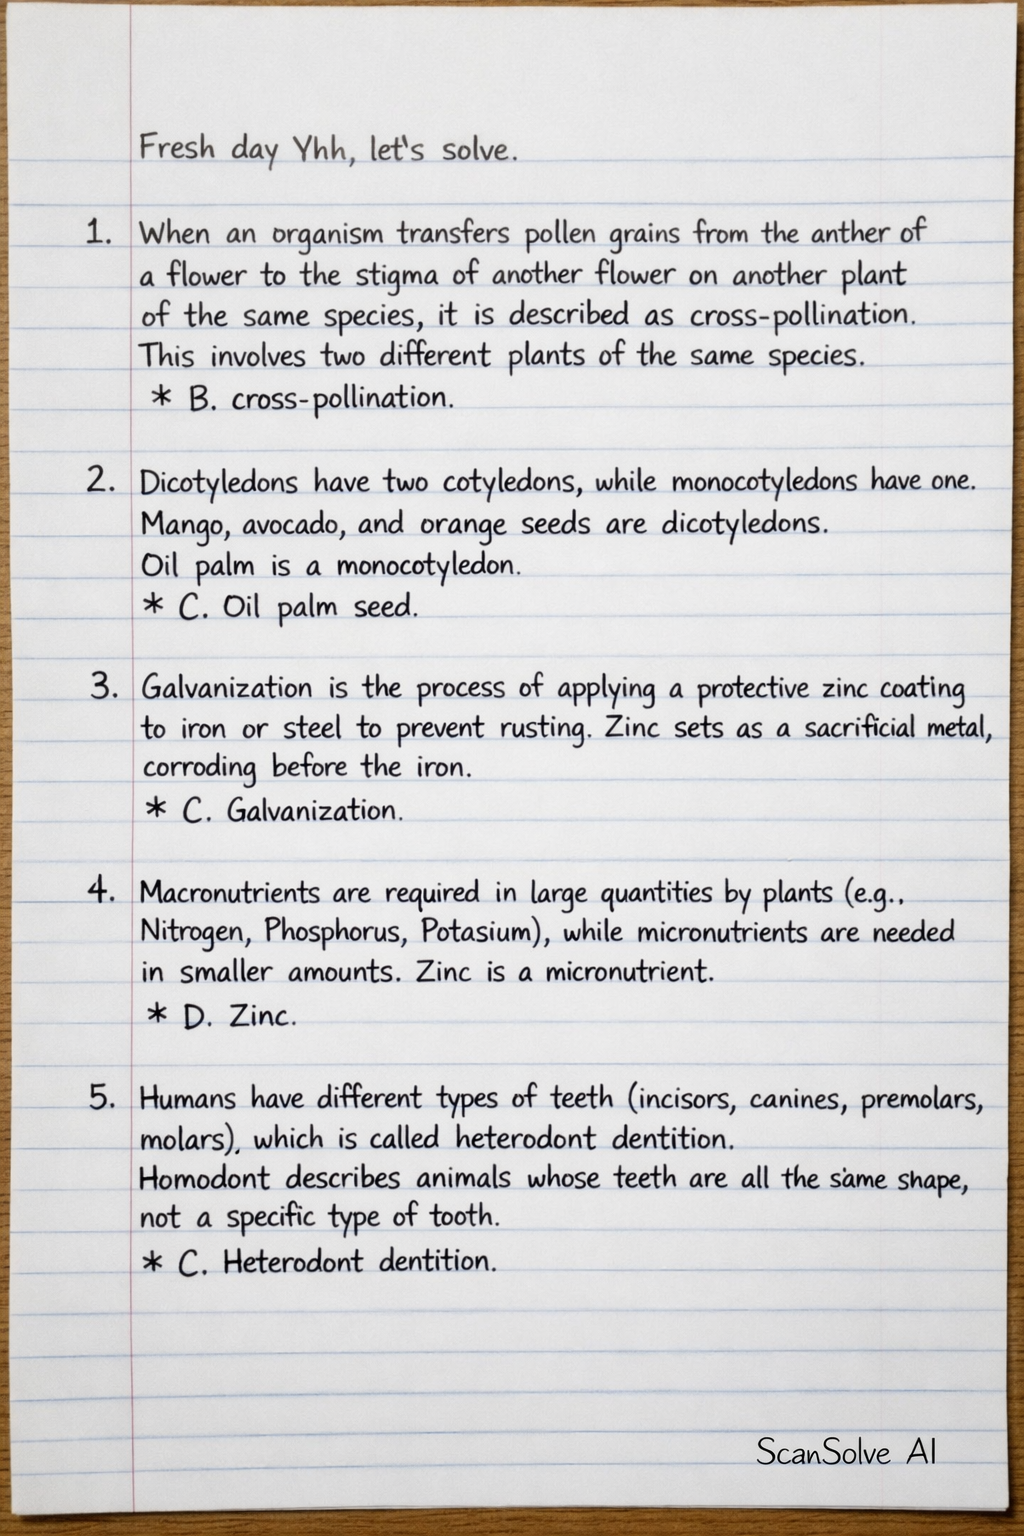 Fresh day Yhh, let's solve.
1. When an organism transfers pollen grains from the anther of
a flower to the stigma of another flower on another plant
of the same species, it is described as cross-pollination.
This involves two different plants of the same species.
* B. cross-pollination.
2. Dicotyledons have two cotyledons, while monocotyledons have one.
Mango, avocado, and orange seeds are dicotyledons.
Oil palm is a monocotyledon.
* C. Oil palm seed.
3. Galvanization is the process of applying a protective zinc coating
to iron or steel to prevent rusting. Zinc sets as a sacrificial metal,
corroding before the iron.
* C. Galvanization.
4. Macronutrients are required in large quantities by plants (e.g..
Nitrogen, Phosphorus, Potasium), while micronutrients are needed
in smaller amounts. Zinc is a micronutrient.
* D. Zinc.
5. Humans have different types of teeth (incisors, canines, premolars,
molars), which is called heterodont dentition.
Homodont describes animals whose teeth are all the same shape,
not a specific type of tooth.
* C. Heterodont dentition.
ScanSolve AI